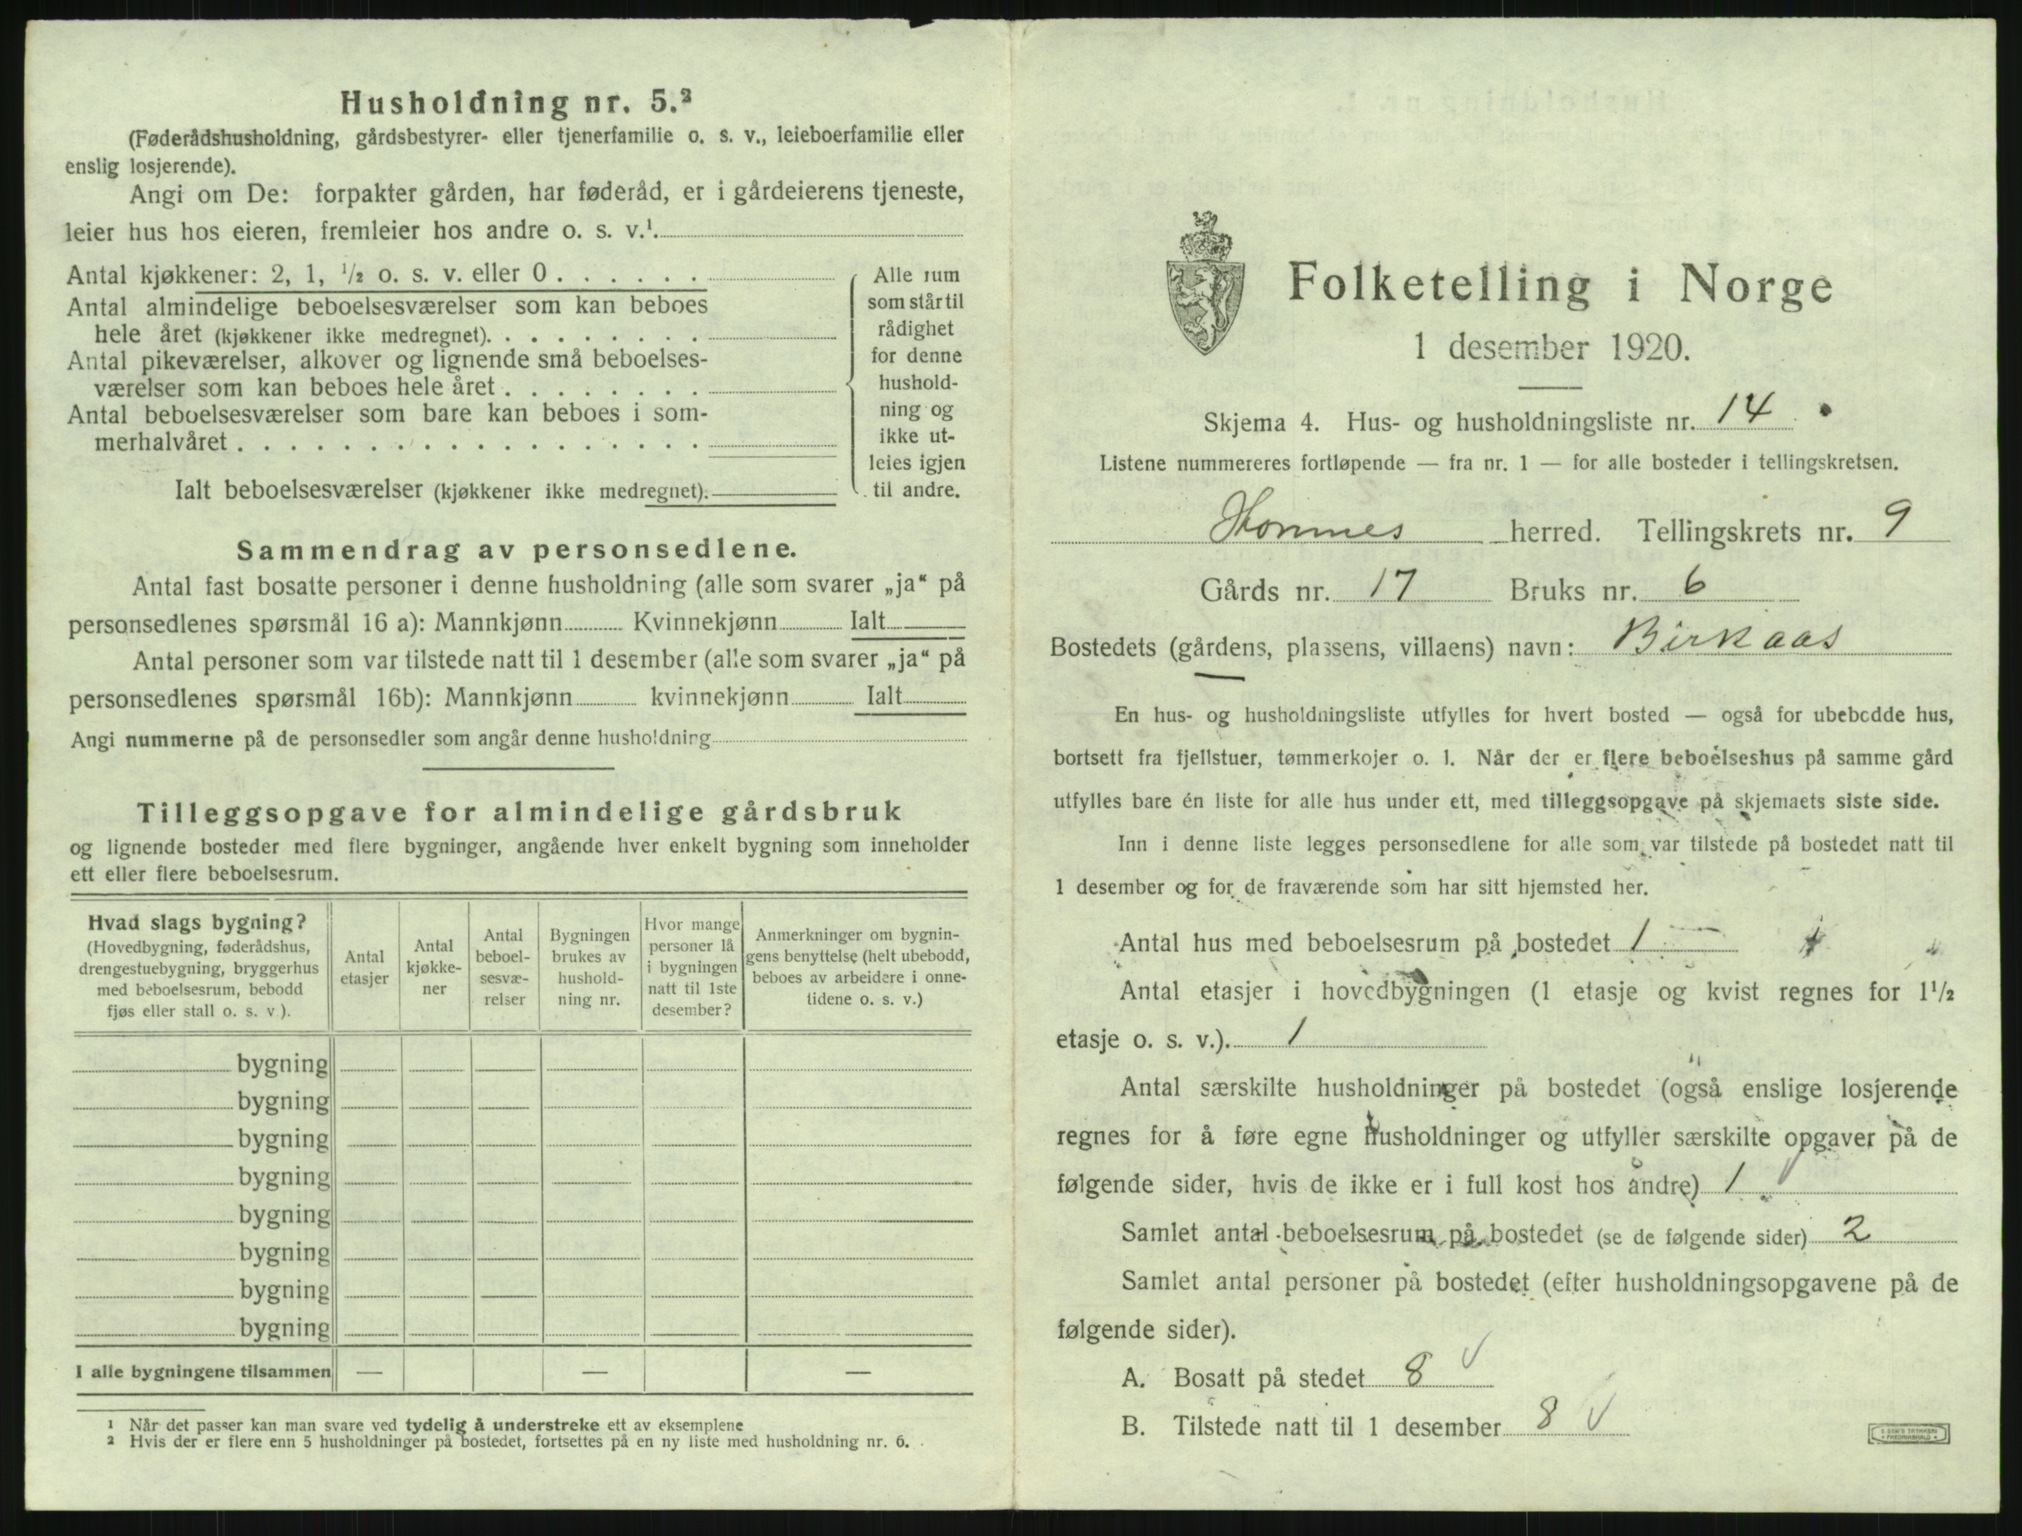 Husholdning nr. 5.²
(Føderådshusholdning, gårdsbestyrer- eller tjenerfamilie o. s. v., leieboerfamilie eller
enslig losjerende).
Angi om De: forpakter gården, har føderåd, er i gårdeierens tjeneste,
leier hus hos eieren, fremleier hos andre o. s. v.¹
Antal kjøkkener: 2, 1, ¹/₂ o. s. v. eller 0 . . . . . .
Antal almindelige beboelsesværelser som kan beboes
hele året (kjøkkener ikke medregnet). . . . . . . . .
Antal pikeværelser, alkover og lignende små beboelses-
værelser som kan beboes hele året . . . . . . . .
Antal beboelsesværelser som bare kan beboes i som-
merhalvåret . . . . . . . . . . . . . . . . . .
Ialt beboelsesværelser (kjøkkener ikke medregnet).
Alle rum
som står til
rådighet
for denne
hushold-
ning og
ikke ut-
leies igjen
til andre.
Sammendrag av personsedlene.
Antal fast bosatte personer i denne husholdning (alle som svarer „ja“ på
personsedlenes spørsmål 16 a): Mannkjønn Kvinnekjønn Ialt
Antal personer som var tilstede natt til 1 desember (alle som svarer „ja“ på
personsedlenes spørsmål 16b): Mannkjønn kvinnekjønn Ialt
Angi nummerne på de personsedler som angår denne husholdning
Tilleggsopgave for almindelige gårdsbruk
og lignende bosteder med flere bygninger, angående hver enkelt bygning som inneholder
ett eller flere beboelsesrum.
Hvad slags bygning?
(Hovedbygning, føderådshus,
drengestuebygning, bryggerhus
med beboelsesrum, bebodd
fjøs eller stall o. s. v ).
Antal
etasjer
Antal
kjøkke-
ner
Antal
beboel-
sesvæ-
relser
Bygningen
brukes av
hushold-
ning nr.
Hvor mange
personer lå
i bygningen
natt til 1ste
desember?
Anmerkninger om bygnin-
gens benyttelse (helt ubebodd,
beboes av arbeidere i onne-
tidene o. s. v.)
bygning
bygning
bygning
bygning
bygning
bygning
bygning
bygning
I alle bygningene tilsammen — — —
¹ Når det passer kan man svare ved tydelig å understreke ett av eksemplene
² Hvis der er flere enn 5 husholdninger på bostedet, fortsettes på en ny liste med husholdning nr. 6.
Folketelling i Norge
1 desember 1920.
Skjema 4. Hus- og husholdningsliste nr. 14
Listene nummereres fortløpende — fra nr. 1 — for alle bosteder i tellingskretsen.
Hommes herred. Tellingskrets nr. 9
Gårds nr. 17 Bruks nr. 6
Bostedets (gårdens, plassens, villaens) navn: Birkaas
En hus- og husholdningsliste utfylles for hvert bosted — også for ubebodde hus,
bortsett fra fjellstuer, tømmerkojer o. l. Når der er flere beboelseshus på samme gård
utfylles bare én liste for alle hus under ett, med tilleggsopgave på skjemaets siste side.
Inn i denne liste legges personsedlene for alle som var tilstede på bostedet natt til
1 desember og for de fraværende som har sitt hjemsted her.
Antal hus med beboelsesrum på bostedet 1
Antal etasjer i hovedbygningen (1 etasje og kvist regnes for 1¹/₂
etasje o. s. v.). 1
Antal særskilte husholdninger på bostedet (også enslige losjerende
regnes for å føre egne husholdninger og utfyller særskilte opgaver på de
følgende sider, hvis de ikke er i full kost hos andre) 1
Samlet antal beboelsesrum på bostedet (se de følgende sider) 2
Samlet antal personer på bostedet (efter husholdningsopgavene på de
følgende sider).
A. Bosatt på stedet 8 √
B. Tilstede natt til 1 desember 8 √